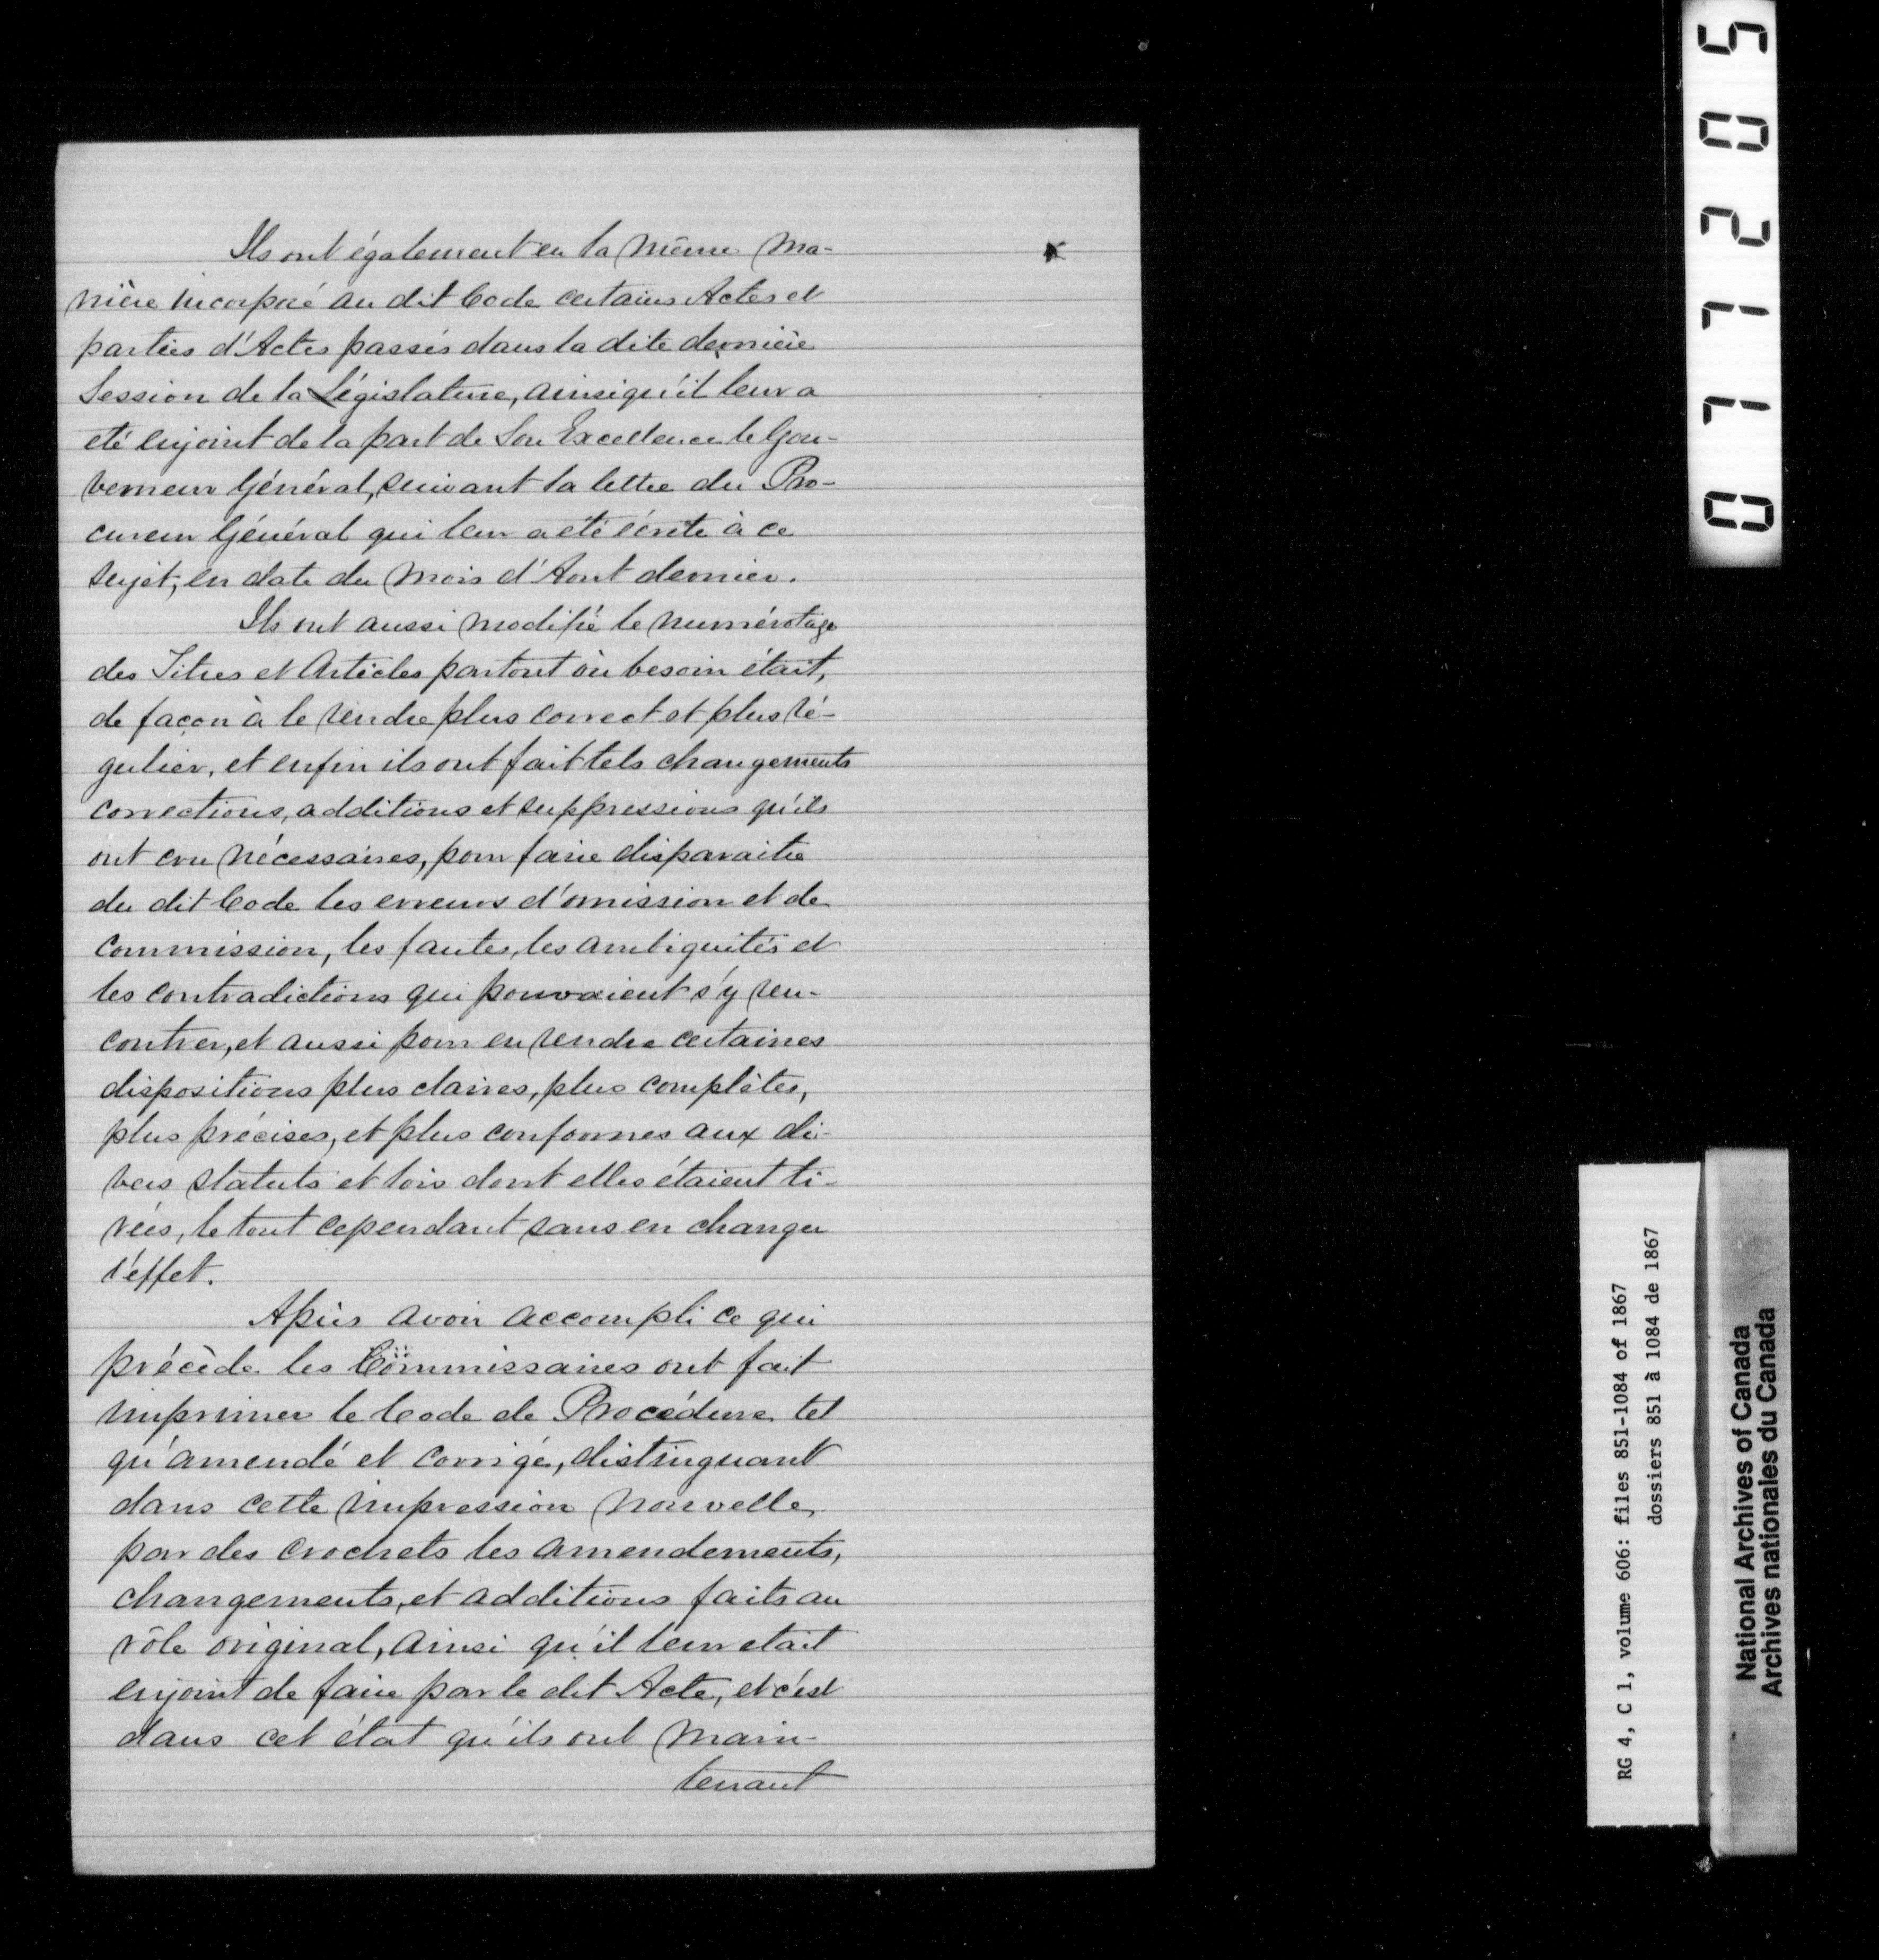 Ils ont également en la même ma-
nière incorporé au dit Code certains Actes et
parties d'Actes passés dans la dite dernière
Session de la Législature, ainsi qu'il leur a
eté enjoint de la part de Son Excellence le Gou-
verneur Général, suivant la lettre du Pro-
cureur Général qui leur a eté écrite à ce
sujet, en date du mois d'Aout dernier.
Ils ont aussi modifié le numérotage
des Titres et Articles partout où besoin était,
de façon à le rendre plus correct et plus ré-
gulier, et enfin ils ont fait tels changements
corrections, additions et suppressions qu'ils
ont cru nécessaires, pour faire disparaitre
du dit Code les erreurs d'omission et de
commission, les fautes, les ambiguités et
les contradictions qui pouvaient s'y ren-
contrer, et aussi pour en rendre certaines
dispositions plus claires, plus complètes,
plus précises, et plus conformes aux di-
vers statuts et lois dont elles étaient ti-
rées, le tout cependant sans en changer
l'effet.
Après avoir accompli ce qui
précède les Commissaires ont fait
imprimer le Code de Procédure tel
qu'amendé et corrigé, distinguant
dans cette impression nouvelle,
par des crochets les amendements,
changements, et additions faits au
rôle original, ainsi qu'il leur etait
enjoint de faire par le dit Acte, et c'est
dans cet état qu'ils ont main-
tenant
0771205
RG 4, C 1, volume 606: files 851-1084 of 1867
dossiers 851 à 1084 de 1867
National Archives of Canada
Archives nationales du Canada